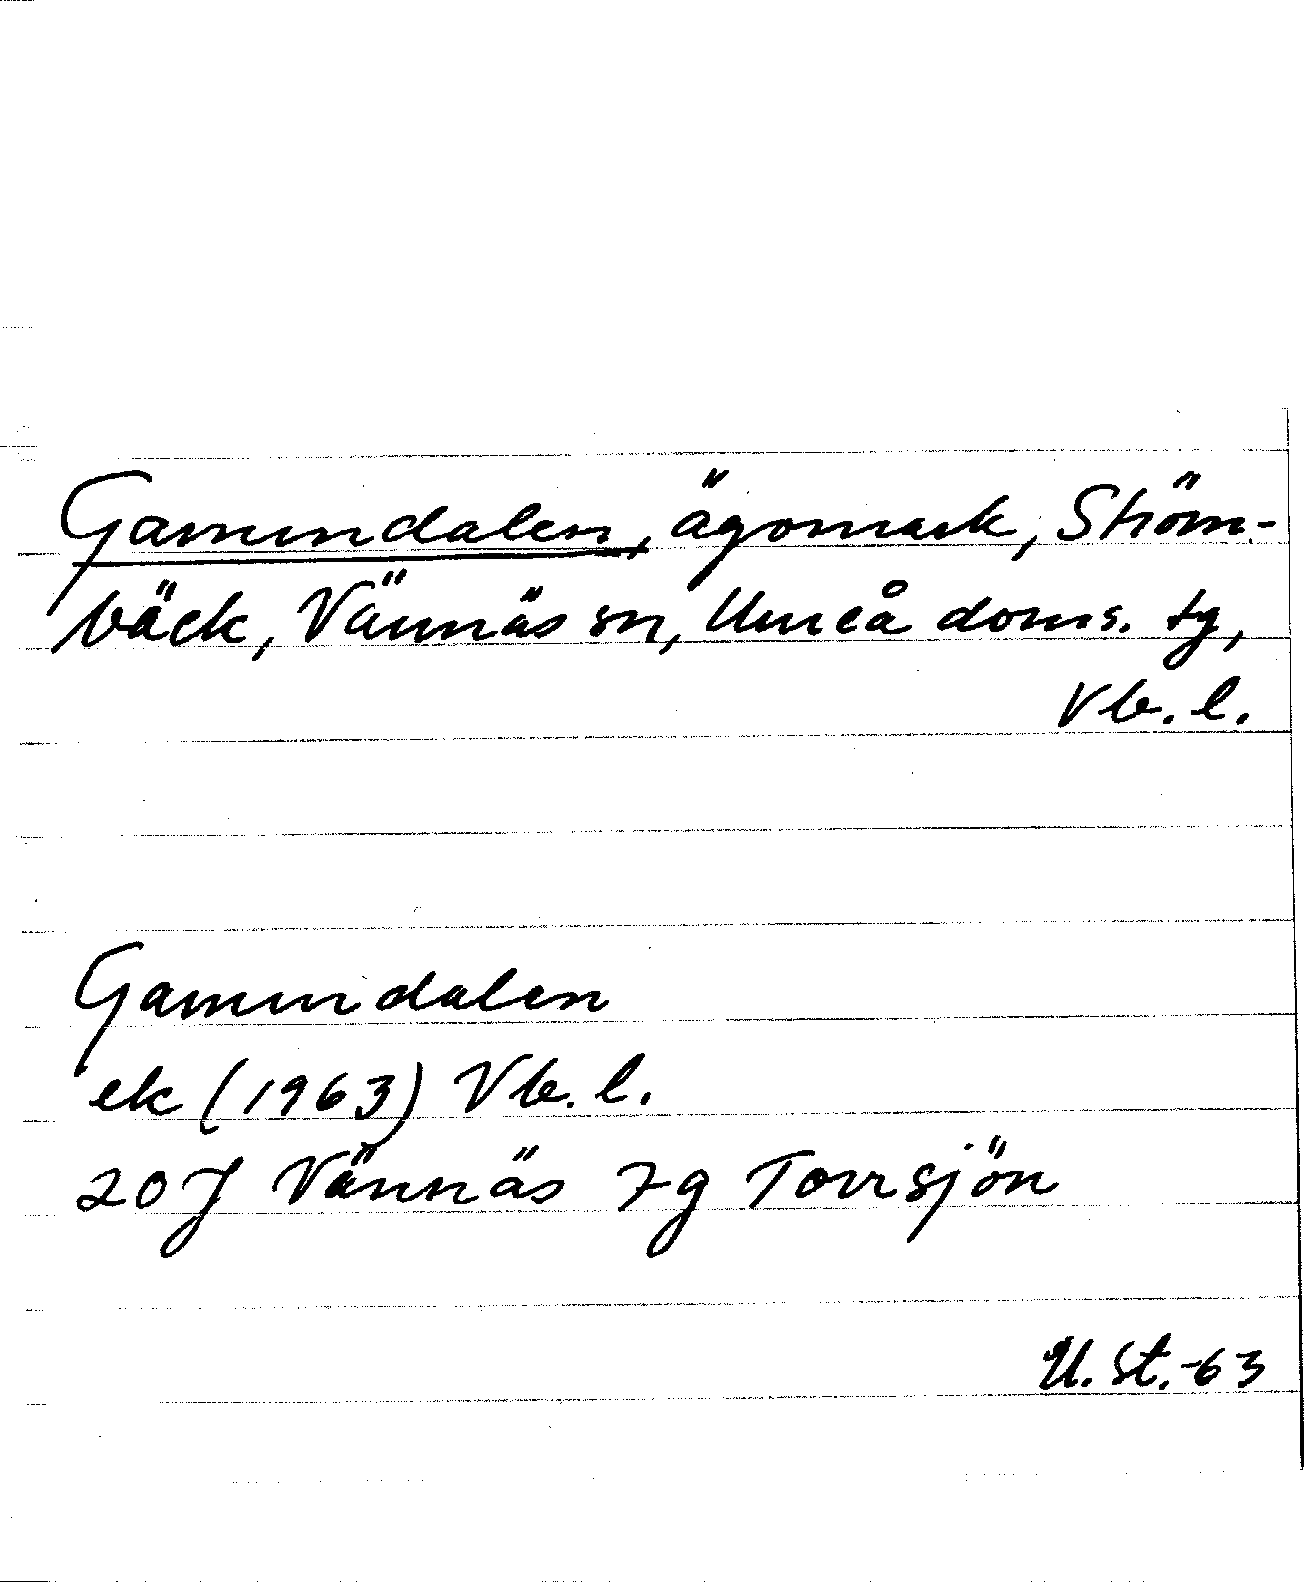 Gamundalen, ägomark, Ström-
bäck, Vännäs sn, Umeå doms. tg,
Vb. l.
Gamundalen
ek (1963) Vb. l.
20J Vännäs 7g Torrsjön
U. St.-63